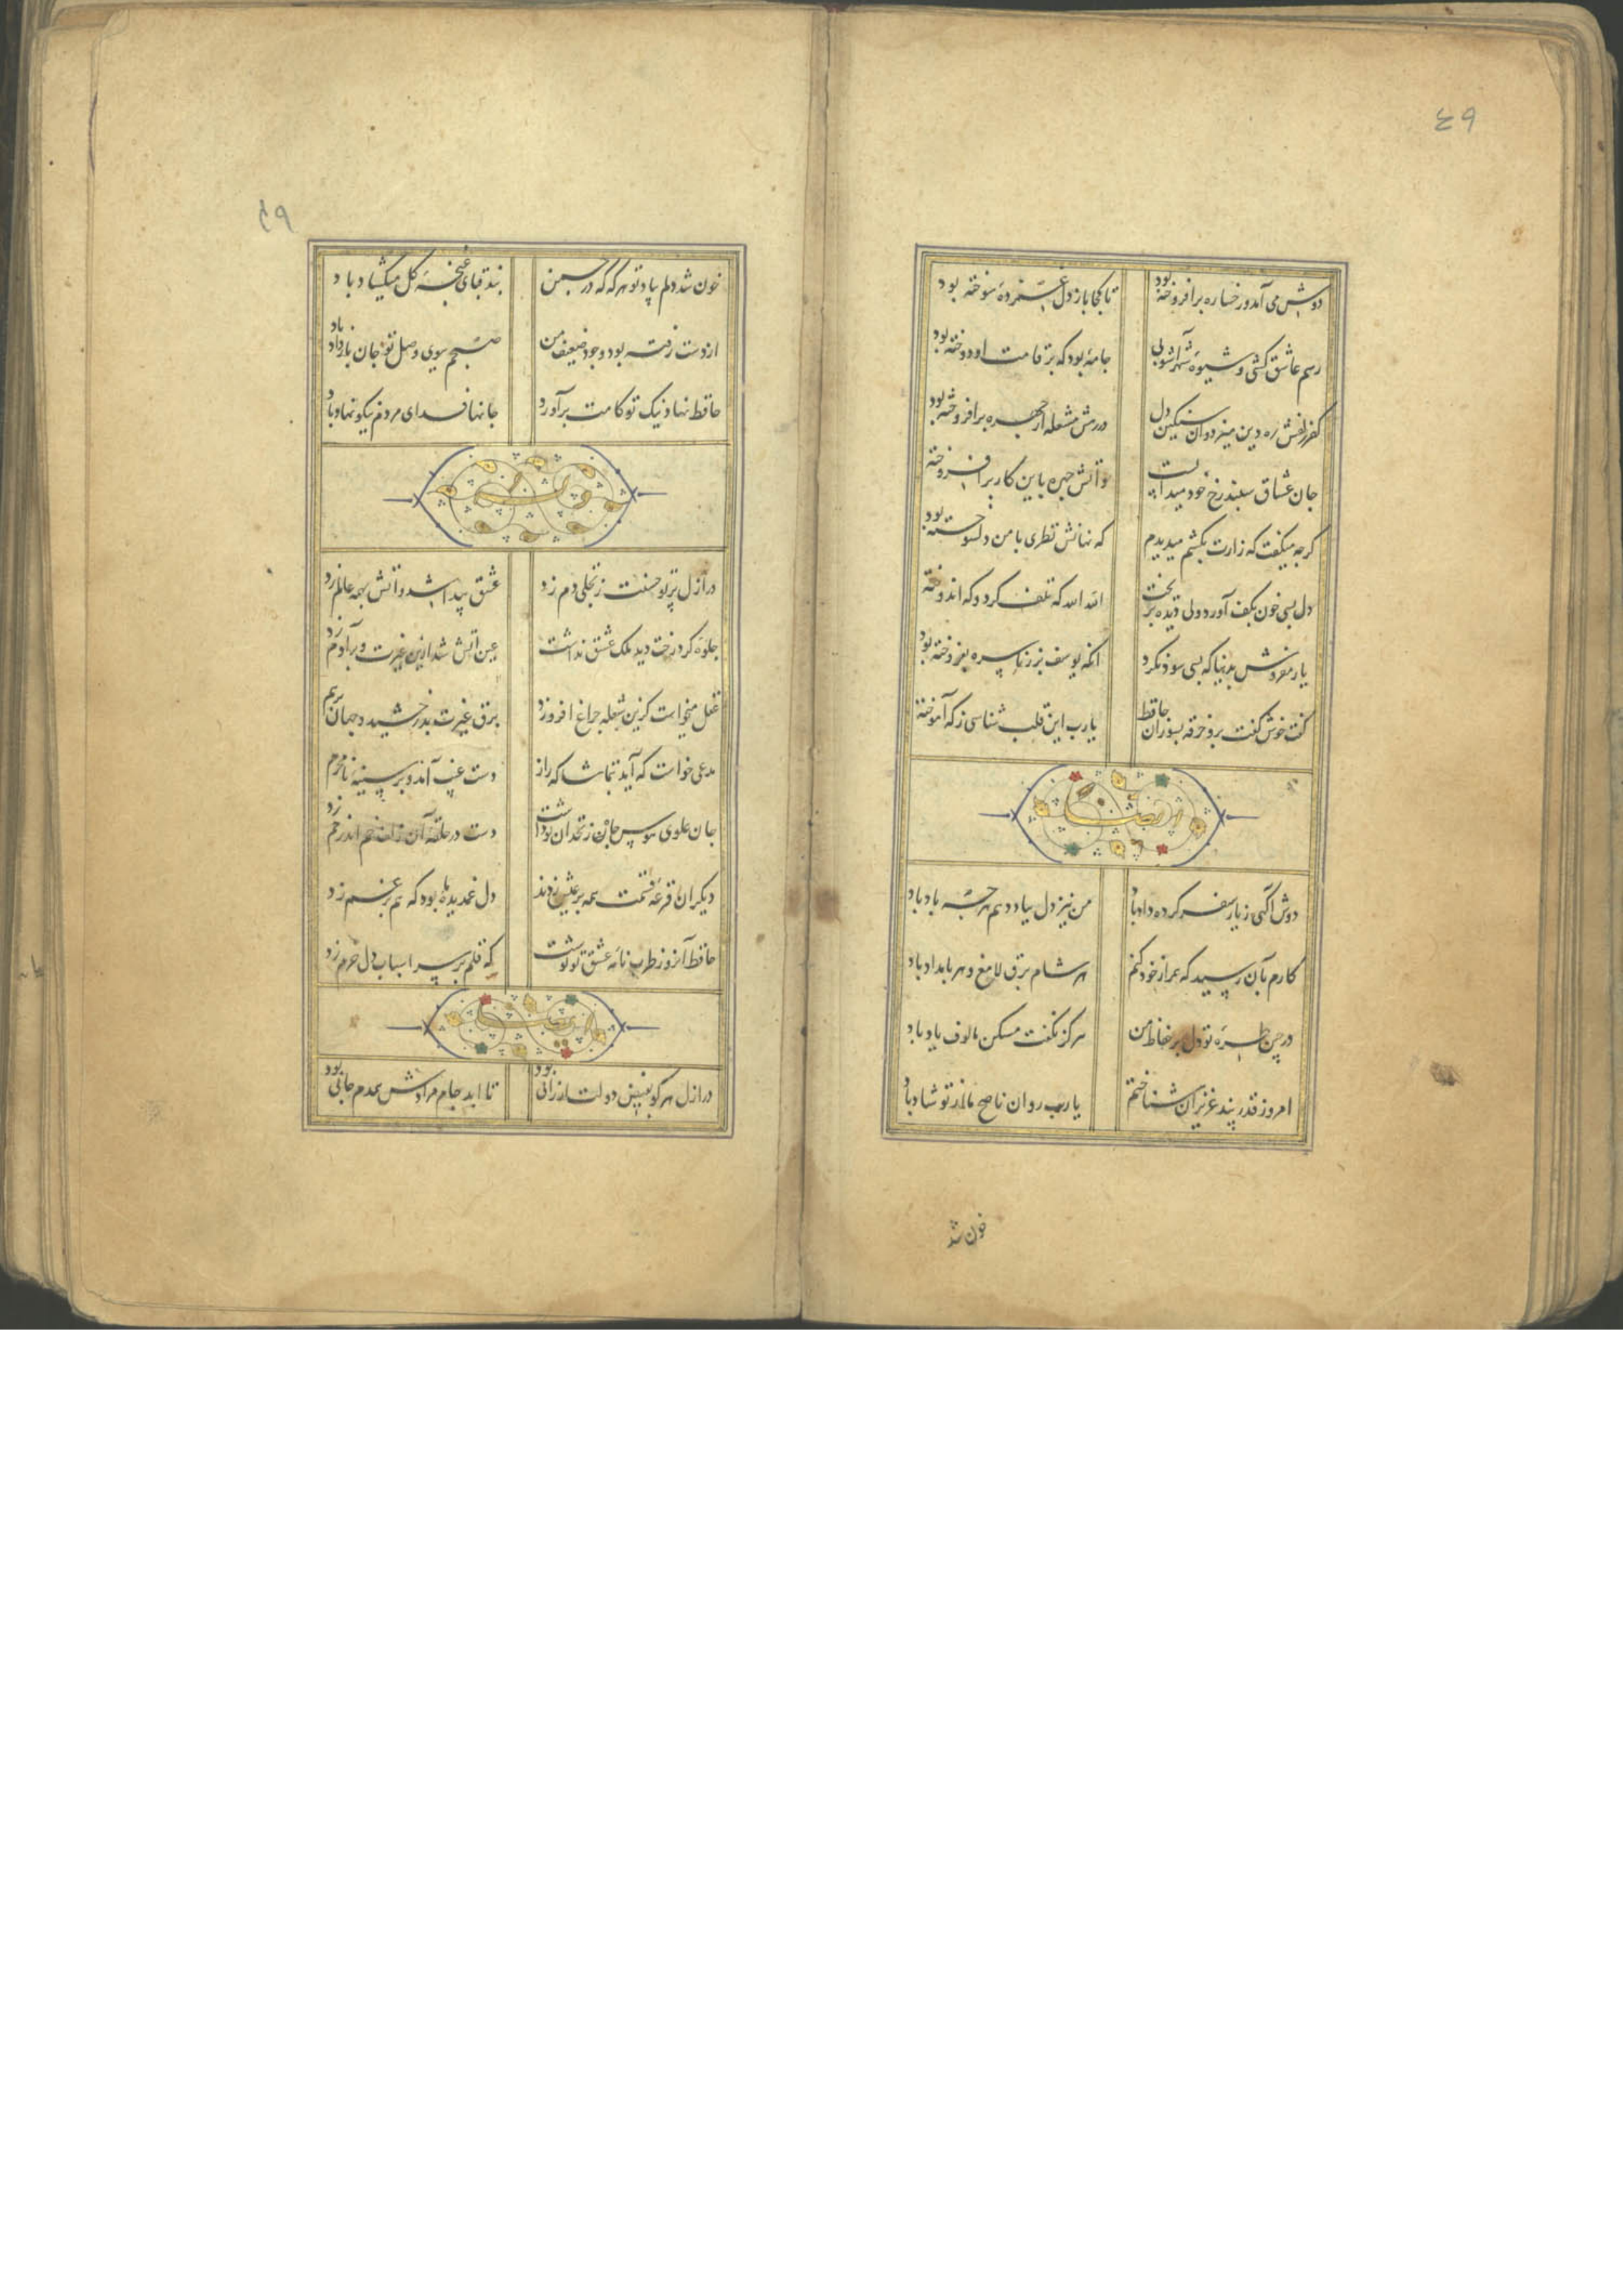 ٤٩
دوش می آمد و رخساره برافروخته بود تا کجا باز دل غمزده سوخته بود
رسم عاشق کشی و شیوه شهر آشوبی جامه بود که بر قامت او دوخته بود
کفر زلفش ره دین میزد و آن سنکین دل در رهش مشعله از چهره برافروخته بود
جان عشاق سپند رخ خود میدانست و آتش چهره باین کار برافروخته
کرچه میکفت که زارت بکشم میدیدم که نهانش نظری با من دلسوخته بود
دل بسی خون بکف آورد ولی دیده بریخت الله الله که تلف کرد و که اندوخته
یار مفروش بدنیا که بسی سود نکرد آنکه یوسف بزر ناسره بفروخته بود
کفت خوش کفت برو خرقه بسوزان حافظ یا رب این قلب شناسی ز که آموخته
ایضا
دوش آکهی ز یار سفر کرده داد باد من نیز دل بباد دهم هر چه باد باد
کارم بآن رسید که همراز خود کنم هر شام برق لامع و هر بامداد باد
در چین طره تو دل بی حفاظ من هرکز نکفت مسکن مالوف یاد باد
امروز قدر پند عزیزان شناختم یا رب روان ناصح ما از تو شاد باد
خون شد
خون شد دلم بیاد تو هر که که در چمن بند قبای غنچه کل میکشاد باد
از دست رفته بود وجود ضعیف من صبحم ببوی وصل تو جان باز داد باد
حافظ نهاد نیک تو کامت برآورد جانها فدای مردم نیکو نهاد باد
در ازل پرتو حسنت ز تجلی دم زد عشق پیدا شد و آتش بهمه عالم زد
جلوه کرد رخت دید ملک عشق نداشت عین آتش شد ازین غیرت و بر آدم زد
عقل میخواست کزین شعله چراغ افروزد برق غیرت بدرخشید و جهان برهم
مدعی خواست که آید بتماشاکه راز دست غیب آمد و بر سینه نامحرم
جان علوی هوس چاه زنخدان تو داشت دست در حلقه آن زلف خم اندر خم زد
دیکران قرعه قسمت همه بر عیش زدند دل غمدیده ما بود که هم بر غم زد
حافظ آن روز طربنامه عشق تو نوشت که قلم بر سر اسباب دل خرم زد
ایضا
در ازل هر کو بفیض دولت ارزانی بود تا ابد جام مرادش همدم جانی بود